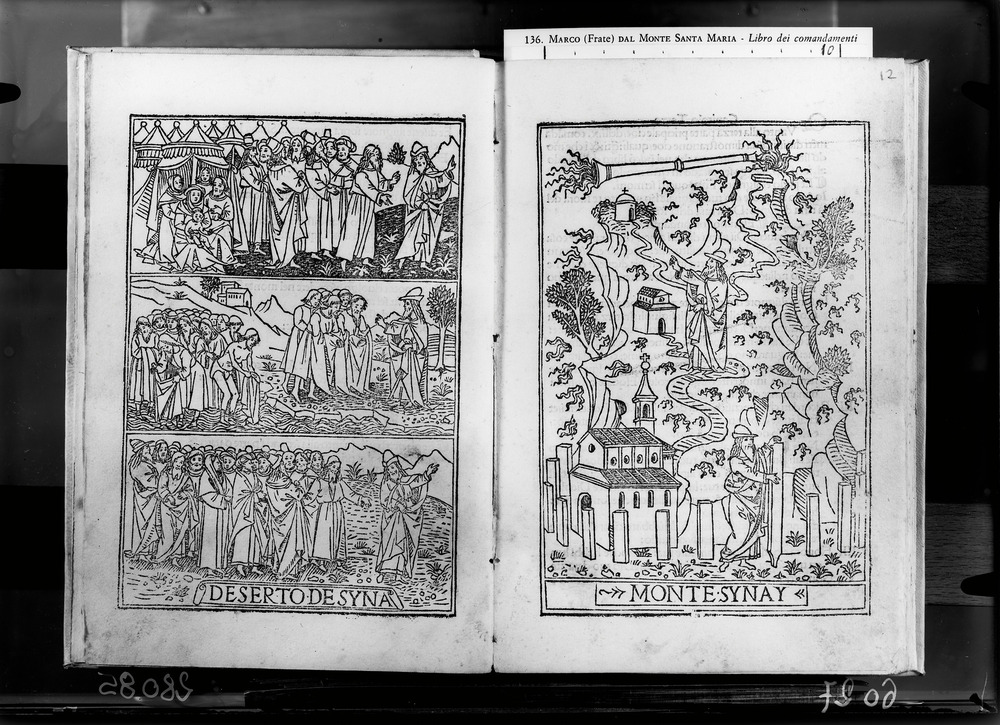 136. MARCO (Frate) DAL MONTE SANTA MARIA - Libro dei comandamenti
10
12
DESERTO·DE SYNAI
MONTE·SYNAY
280.85